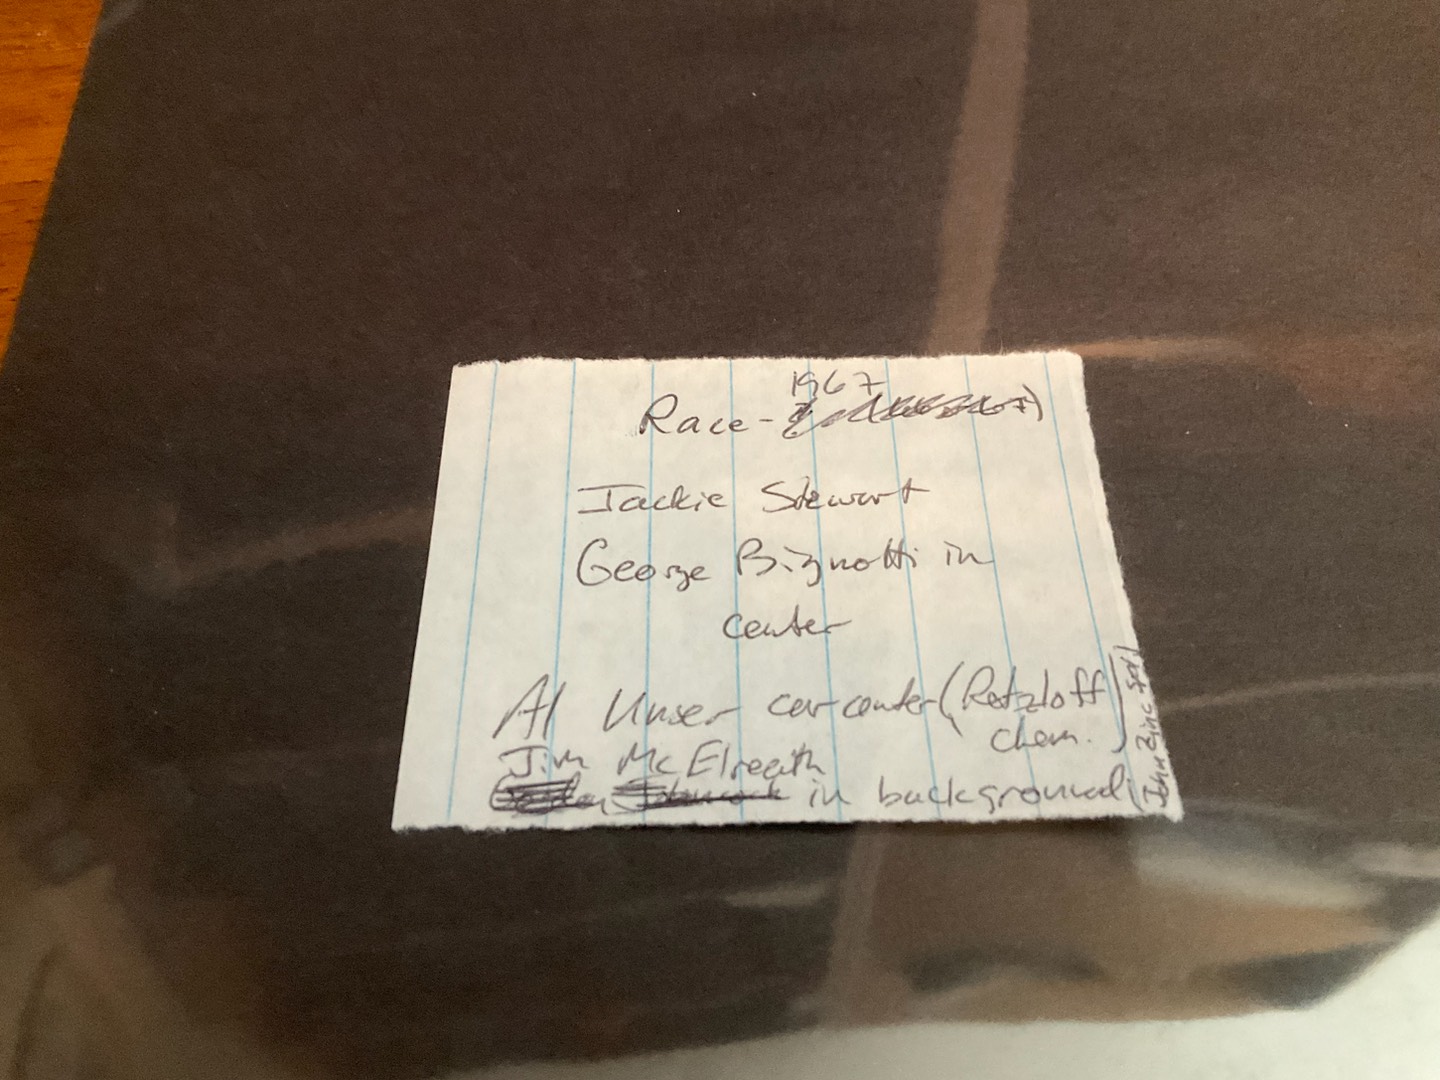 1967
Race-
Jackie Stewart
George Bignotti in
center
Al Unser car center (Retzloff
chem.)
Jim McElreath
in background (John Zinc Spl)